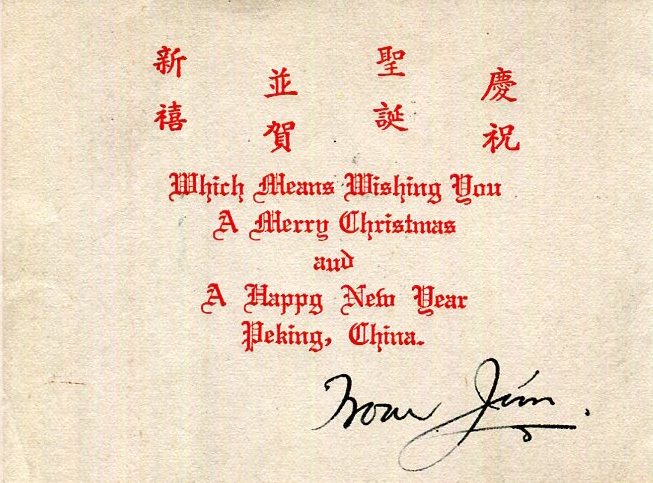 慶祝
聖誕
並賀
新禧
Which Means Wishing You
A Merry Christmas
and
A Happg New Year
Peking, China.
From Jim.